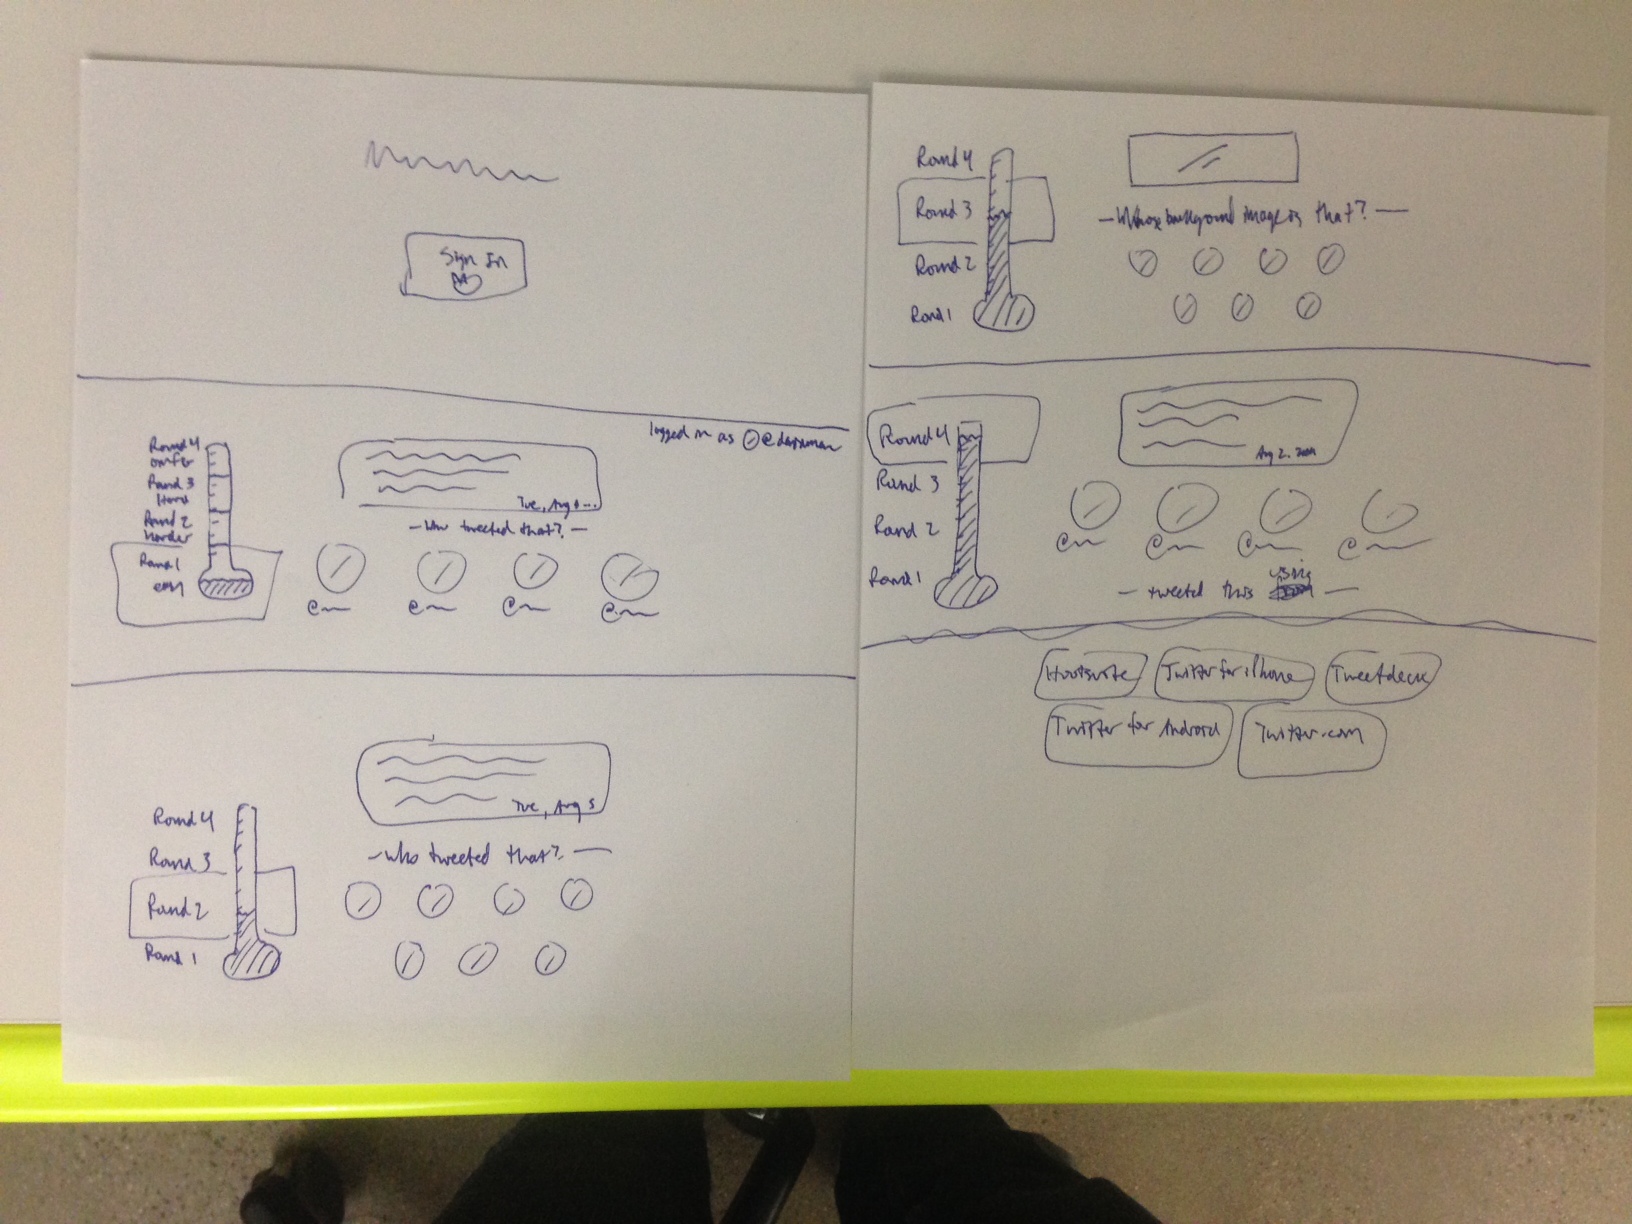 Sign In
logged in as @
Round 4
Round 3
Hard
Round 2
harder
Round 1
easy
Tue, Aug
- Who tweeted that? -
Tue, Aug 5
- Who tweeted that? -
Round 4
Round 3
Round 2
Round 1
Round 4
Round 3
Round 2
Round 1
- Whose background image is that? -
Round 4
Round 3
Round 2
Round 1
Aug 2,
- tweeted this using -
Hootsuite
Twitter for iPhone
Tweetdeck
Twitter for Android
Twitter.com